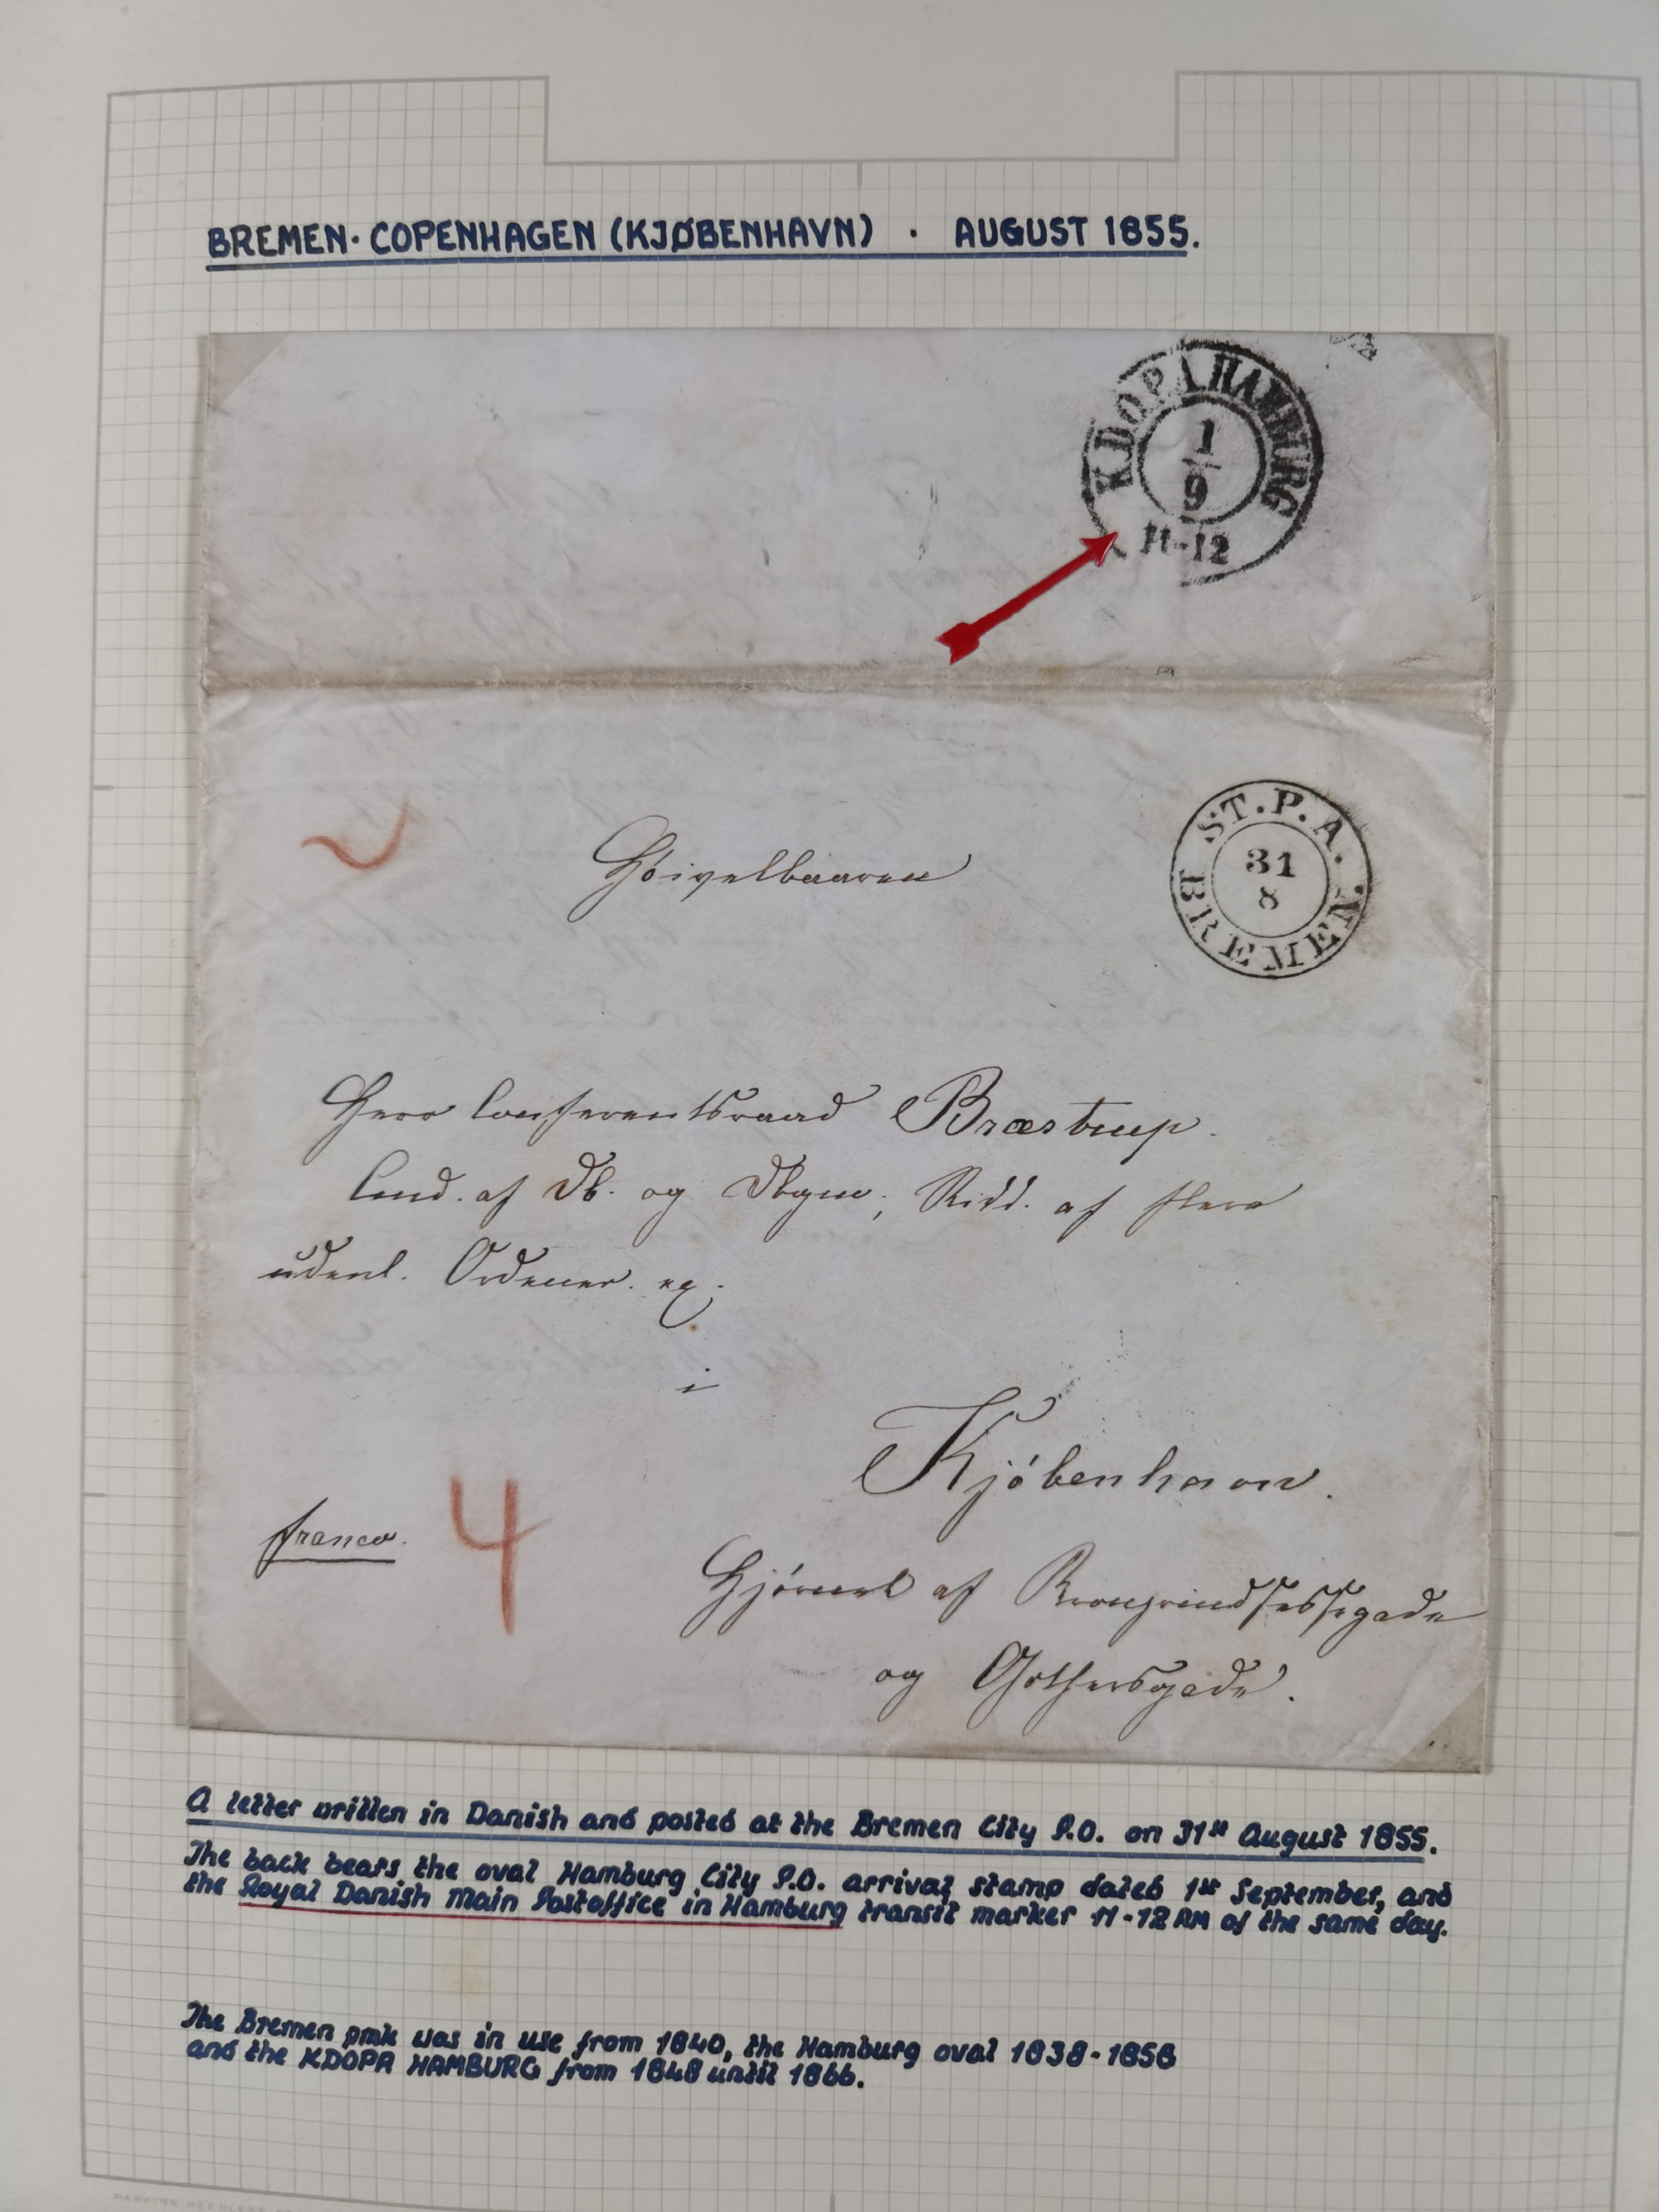 BREMEN· COPENHAGEN (KJØBENHAVN) · AUGUST 1855.
K.D.O.P.A HAMBURG
1
9
11-12
ST. P. A.
31
8
BREMEN
Høivelbaaren
Herr Conferentsraad Bræstrup.
Comd. af Db. og Dbgm., Ridd. af flere
udenl. Ordener.
i
Kjöbenhavn.
franco. 4
Hjörnet af Kronprindsessegade
og Gothersgade.
A letter written in Danish and posted at the Bremen City P.O. on 31st August 1855.
The back bears the oval Hamburg City P.O. arrival stamp dated 1st September, and
the Royal Danish Main Postoffice in Hamburg transit marker 11-12 AM of the same day.
The Bremen pmk was in use from 1840, the Hamburg oval 1838-1858
and the KDOPA HAMBURG from 1848 until 1866.